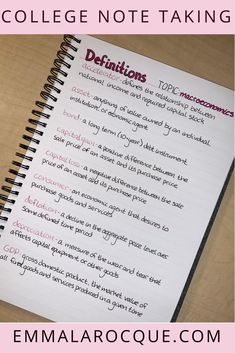 COLLEGE NOTE TAKING
Definitions
TOPIC: macroeconomics
accelerator- defines the relationship between
national income and required capital stock
asset- anything of value owned by an individual,
institution, or economic agent
bond- a long term (10 year) debt instrument
capital gain- a positive difference between the
sale price of an asset and its purchase price
capital loss- a negative difference between the sale
price of an asset and its purchase price
consumer- an economic agent that desires to
purchase goods and services
deflation- a decline in the aggregate price level over
some defined time period
depreciation- a measure of the wear and tear that
affects capital equipment or other goods
GDP- gross domestic product, the market value of
all final goods and services produced in a given time
EMMALAROCQUE.COM